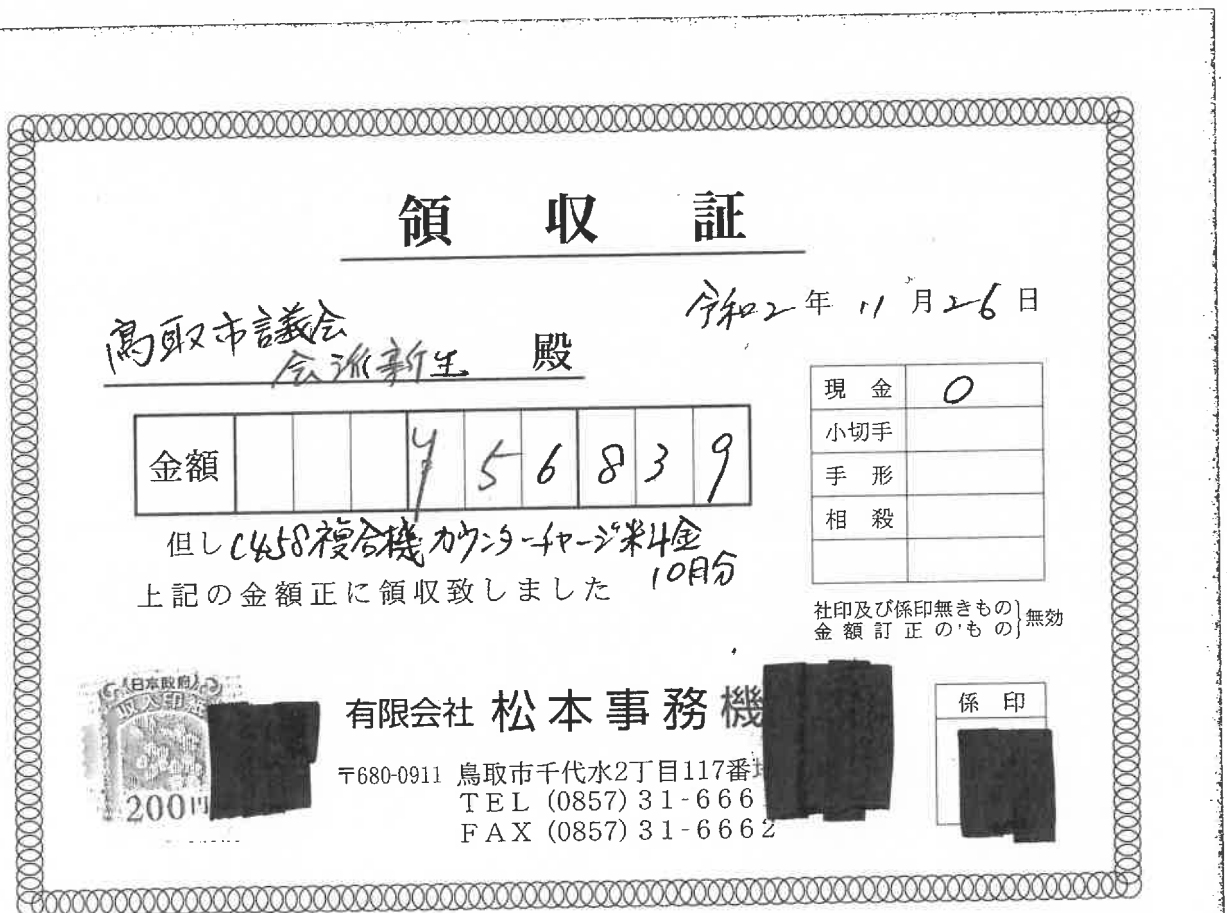 領収証
令和2年11月26日
鳥取市議会
会派新生 殿
金額 ¥56839
但しC458複合機カウンターチャージ料金
10月分
上記の金額正に領収致しました
現金 0
小切手
手形
相殺
社印及び係印無きもの
金額訂正のもの}無効
日本政府
収入印
200円
有限会社 松本事務機
〒680-0911 鳥取市千代水2丁目117番
TEL (0857) 31-666
FAX (0857) 31-6662
係印